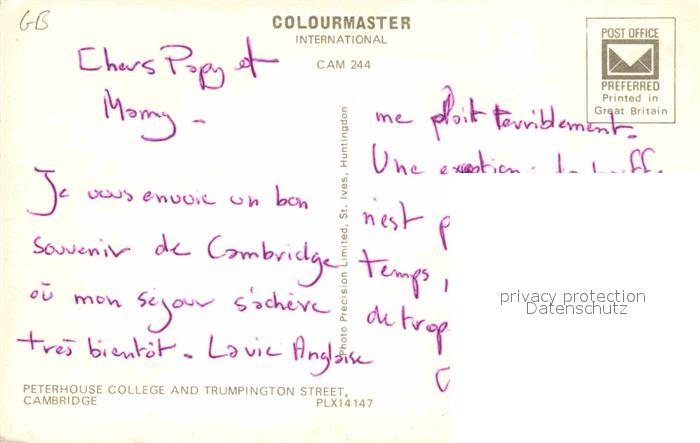 GB
COLOURMASTER
INTERNATIONAL
CAM 244
POST OFFICE
PREFERRED
Printed in
Great Britain
Chers Papy et
Mamy -
Je vous envoie un bon
souvenir de Cambridge
où mon séjour s'achève
très bientôt. La vie Anglaise
me plaît terriblement.
Une exception : la
n'est
temps,
de trop
Photo Precision Limited, St. Ives, Huntingdon
PETERHOUSE COLLEGE AND TRUMPINGTON STREET,
CAMBRIDGE
PLX14147
privacy protection
Datenschutz